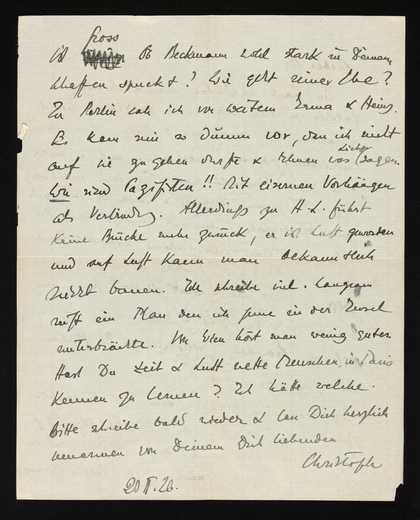 Gross
ist Ob Beckmann wohl stark in Deinem
Schaffen spuckt? Wie geht seiner Ehe?
In Berlin sah ich von weitem Erna & Heinz.
Es kam mir so dumm vor, dass ich nicht
auf sie zu gehen durfte & Ihnen was Liebes sagen.
Wir sind Pazifisten!! Mit eisernen Vorhängen
als Verbindung. Allerdings zu H. L. führt
keine Brücke mehr zurück, er ist Luft geworden
und auf Luft kann man bekanntlich
nicht bauen. Ich schreibe viel. Langsam
reift ein Plan den ich gerne in der Insel
unterbrächte. Von Wien hört man wenig gutes
Hast Du Zeit & Lust nette Menschen in Paris
kennen zu lernen? Ich hätte welche.
Bitte schreibe bald wieder & lass Dich herzlich
umarmen von Deinem Dich liebenden
Christoph
20 II. 26.